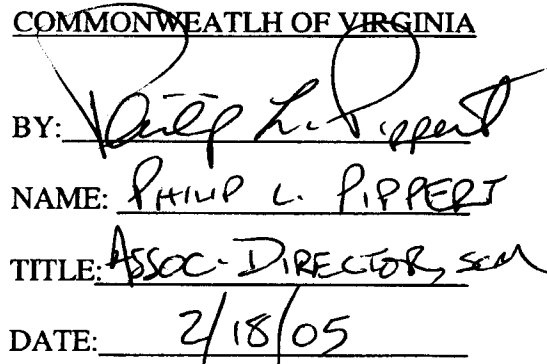 COMMONWEATLH OF VIRGINIA
BY: Philip L. Pippert
NAME: PHILIP L. PIPPERT
TITLE: ASSOC-DIRECTOR, SCM
DATE: 2/18/05